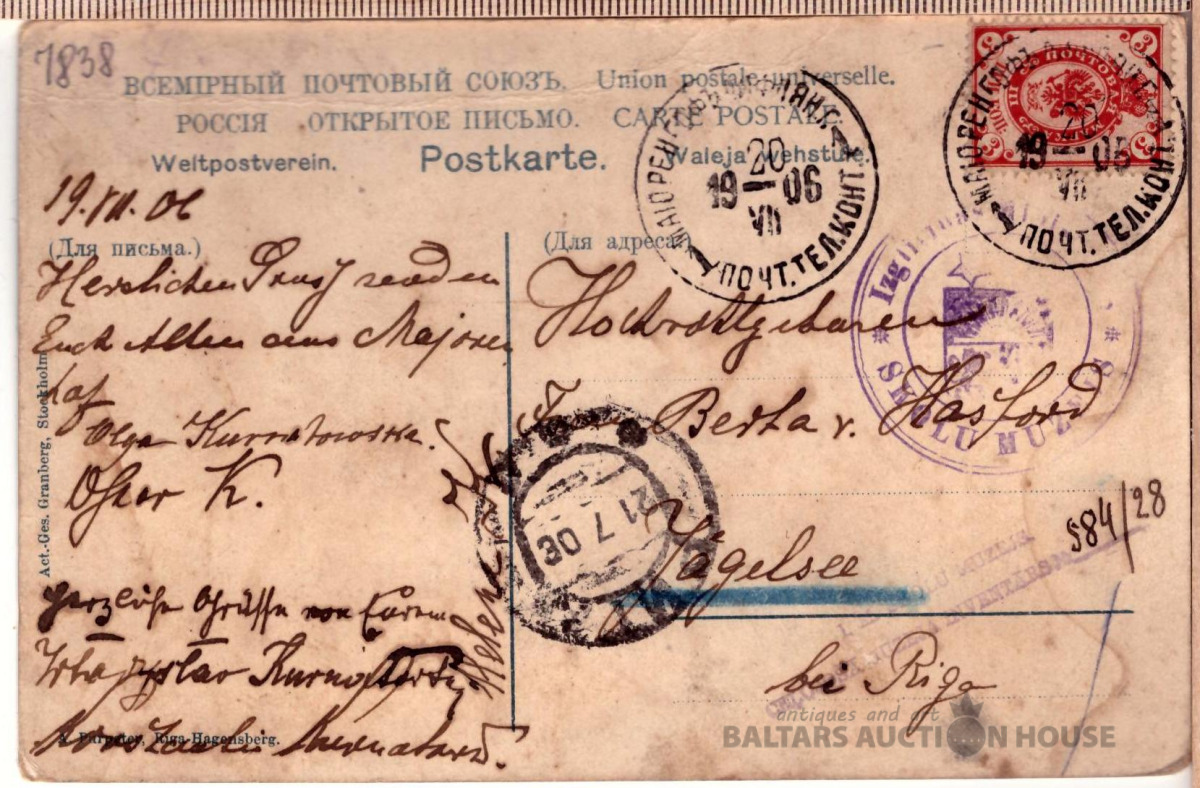 7838
ВСЕМІРНЫЙ ПОЧТОВЫЙ СОЮЗЪ. Union postale universelle.
РОССІЯ ОТКРЫТОЕ ПИСЬМО. CARTE POSTALE.
Weltpostverein. Postkarte. Waleja wehstule.
3 3
ПОЧТОВАЯ
МАІОРЕНГОФЪ ЛИФЛЯНД.
20
19—06
VII
1 ПОЧТ.ТЕЛ.КОНТ.
МАІОРЕНГОФЪ
20
19—06
VII
1 ПОЧТ.ТЕЛ.КОНТ.
19.VII.06
(Для письма.)
Herzlichen Gruss senden
Euch Allen aus Majoren
hof
Olga Kurnatowska.
Oskar K.
Helena
herzliche Grüsse von Eurem
Kurnatowsky
Act.-Ges. Granberg, Stockholm
Riga-Hagensberg.
(Для адреса.)
Hochwohlgeboren
Frau Berta v. Hasford
Jägelsee
bei Riga
21 7 06
* SKOLU MUZEJS *
584/28
antiques and art
BALTARS AUCTION HOUSE